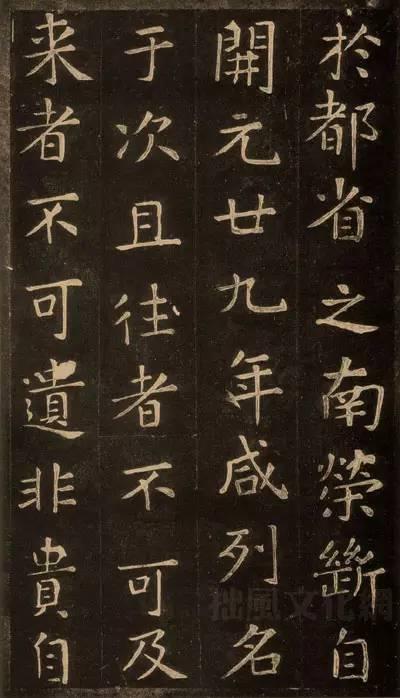 扵都省之南榮斷自
開元廿九年咸列名
于次且往者不可及
来者不可遺非貴自
拙風文化網